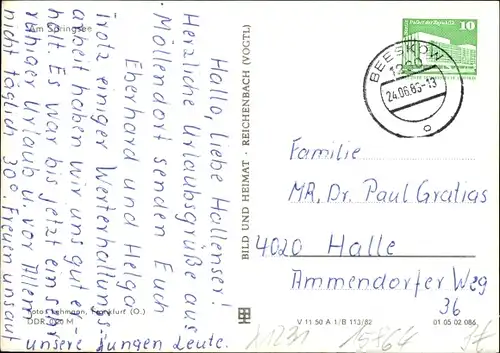 Am Springsee
Hallo, liebe Hallenser!
Herzliche Urlaubsgrüße aus
Möllendorf senden Euch
Eberhard und Helga
Trotz einiger
arbeit haben wir uns gut er-
holt. Es war bis jetzt ein sehr
ruhiger Urlaub u. vor Allem
nicht täglich 30°. Freuen uns auf
unsere Jungen Leute.
Fotos Lehmann, Frankfurt (O.)
DDR M
BILD UND HEIMAT · REICHENBACH (VOGTL)
V 11 50 A 1/B 113/82
01 05 02 086
Palast der Republik
10
BEESKOW
1230
24.06.86-13
Familie
MR, Dr. Paul Gratias
4020 Halle
Ammendorfer Weg
36